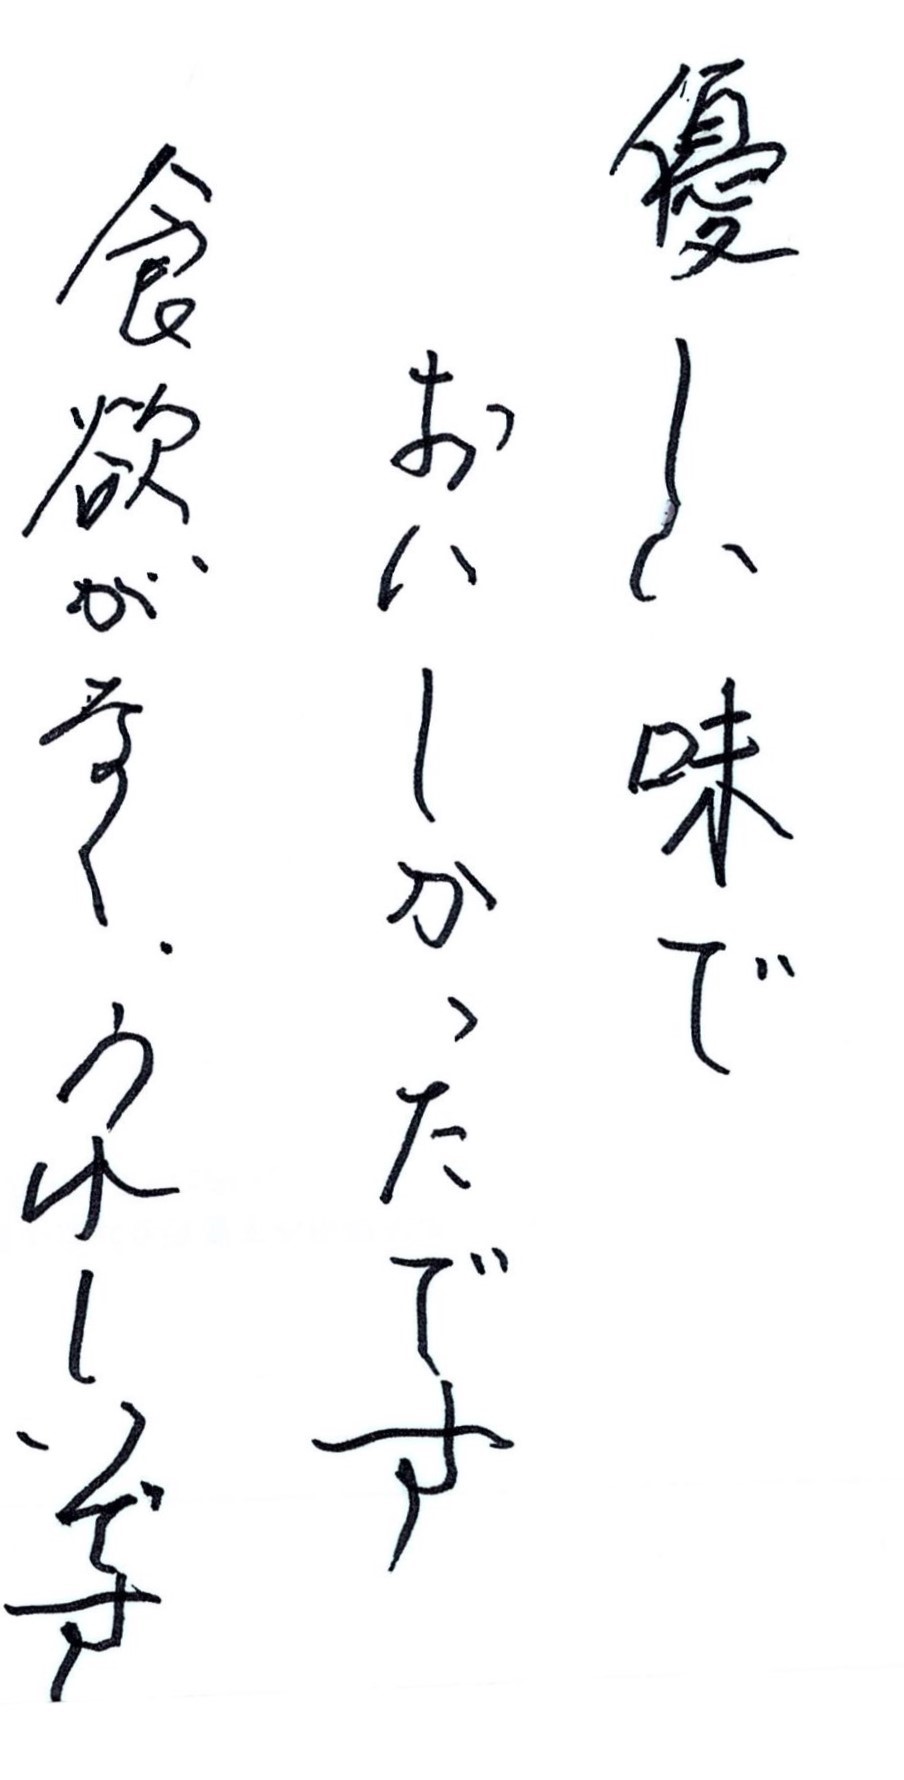 優しい味で
おいしかったです
食欲が出て、うれしいです